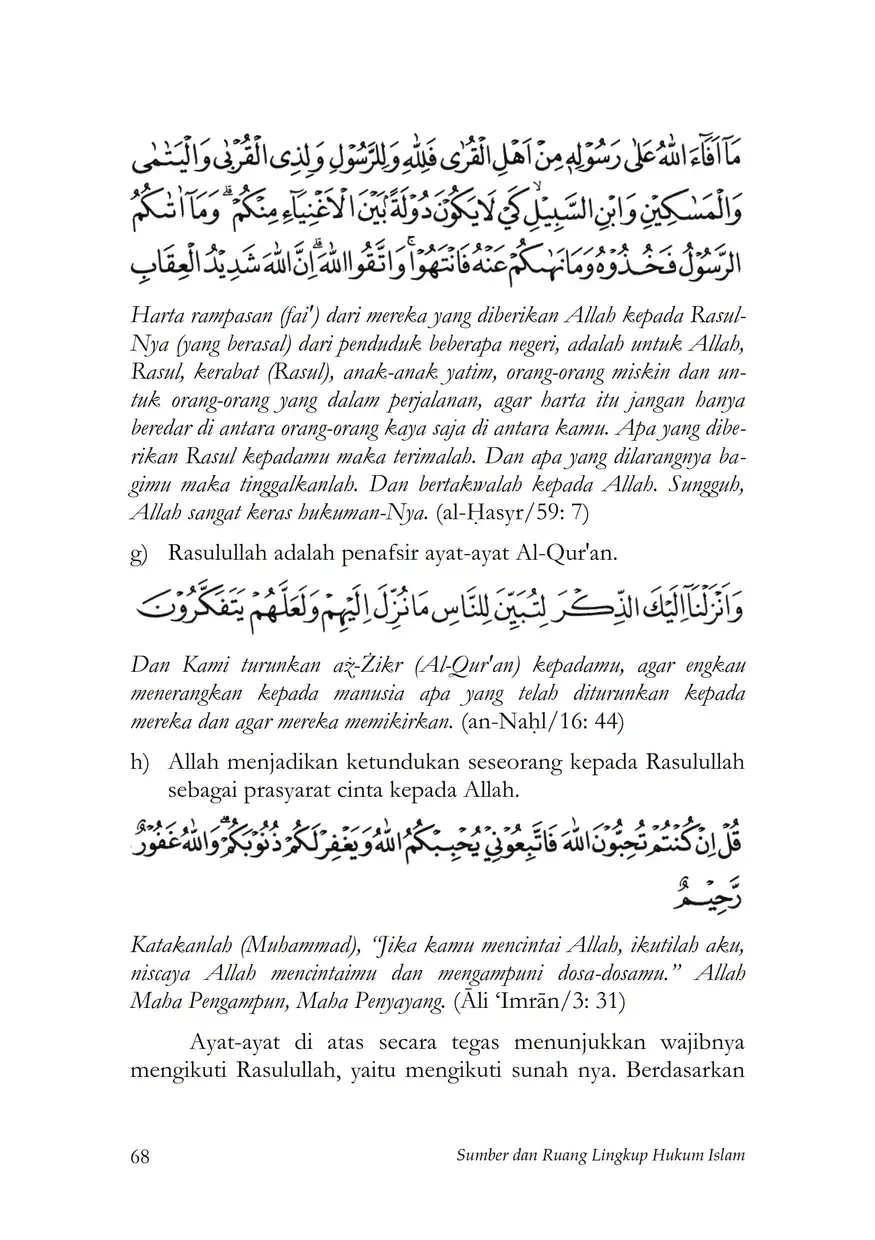 مَآ اَفَاۤءَ اللّٰهُ عَلٰى رَسُوْلِهٖ مِنْ اَهْلِ الْقُرٰى فَلِلّٰهِ وَلِلرَّسُوْلِ وَلِذِى الْقُرْبٰى وَالْيَتٰمٰى
وَالْمَسٰكِيْنِ وَابْنِ السَّبِيْلِۙ كَيْ لَا يَكُوْنَ دُوْلَةً ۢ بَيْنَ الْاَغْنِيَاۤءِ مِنْكُمْۗ وَمَآ اٰتٰىكُمُ
الرَّسُوْلُ فَخُذُوْهُ وَمَا نَهٰىكُمْ عَنْهُ فَانْتَهُوْاۚ وَاتَّقُوا اللّٰهَۗ اِنَّ اللّٰهَ شَدِيْدُ الْعِقَابِ
Harta rampasan (fai') dari mereka yang diberikan Allah kepada Rasul-
Nya (yang berasal) dari penduduk beberapa negeri, adalah untuk Allah,
Rasul, kerabat (Rasul), anak-anak yatim, orang-orang miskin dan un-
tuk orang-orang yang dalam perjalanan, agar harta itu jangan hanya
beredar di antara orang-orang kaya saja di antara kamu. Apa yang dibe-
rikan Rasul kepadamu maka terimalah. Dan apa yang dilarangnya ba-
gimu maka tinggalkanlah. Dan bertakwalah kepada Allah. Sungguh,
Allah sangat keras hukuman-Nya. (al-Ḥasyr/59: 7)
g) Rasulullah adalah penafsir ayat-ayat Al-Qur'an.
وَاَنْزَلْنَآ اِلَيْكَ الذِّكْرَ لِتُبَيِّنَ لِلنَّاسِ مَا نُزِّلَ اِلَيْهِمْ وَلَعَلَّهُمْ يَتَفَكَّرُوْنَ
Dan Kami turunkan aż-Żikr (Al-Qur'an) kepadamu, agar engkau
menerangkan kepada manusia apa yang telah diturunkan kepada
mereka dan agar mereka memikirkan. (an-Naḥl/16: 44)
h) Allah menjadikan ketundukan seseorang kepada Rasulullah
sebagai prasyarat cinta kepada Allah.
قُلْ اِنْ كُنْتُمْ تُحِبُّوْنَ اللّٰهَ فَاتَّبِعُوْنِيْ يُحْبِبْكُمُ اللّٰهُ وَيَغْفِرْ لَكُمْ ذُنُوْبَكُمْۗ وَاللّٰهُ غَفُوْرٌ
رَّحِيْمٌ
Katakanlah (Muhammad), “Jika kamu mencintai Allah, ikutilah aku,
niscaya Allah mencintaimu dan mengampuni dosa-dosamu.” Allah
Maha Pengampun, Maha Penyayang. (Āli ‘Imrān/3: 31)
Ayat-ayat di atas secara tegas menunjukkan wajibnya
mengikuti Rasulullah, yaitu mengikuti sunah nya. Berdasarkan
68 Sumber dan Ruang Lingkup Hukum Islam